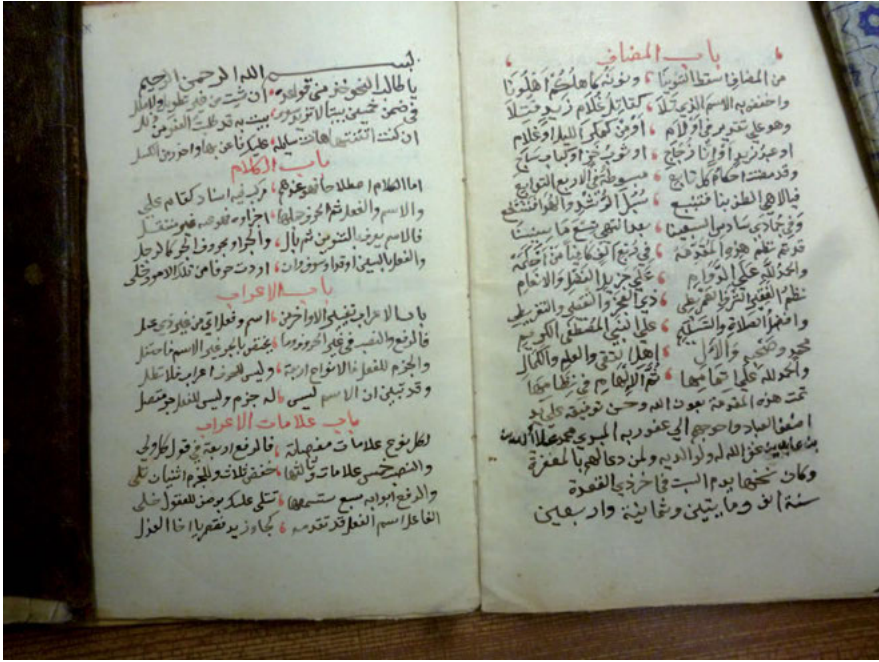 باب المضاف
من المضاف اسقط التنوينا ونونه كما هلكم اهلونا
واخفض به الاسم الذي له تلا كقاتل غلام زيد قتلا
وهو على تقدير في او لام او من كمكر الليل او غلام
او عبد زيد او انا زجاج او ثوب خز او كباب ساج
وقد مضت احكام كل تابع مبسوطة في الاربع التوابع
فيا الهي الطف بنا فنتبع سبل الرشد والهدا فننتفع
وفي جمادى سادس السبعينا بعد انتهى تسع مئينا
قد تم نظم هذه المقدمة في ربع الف كافيا من احكمه
والحمد لله على الدوام على جزيل الفضل والانعام
نظم الفقير الشرف العمريطي ذي العجز والتقصير والتفريط
وافضل الصلاة والتسليم على النبي المصطفى الكريم
محمد وصحبه والآل اهل التقى والعلم والكمال
والحمد لله على تمامها ثم الالهام في نظامها
تمت هذه المقدمة بعون الله وحسن توفيقه على يد
اضعف العباد واحوجهم الى عفو ربه المبدي محمد علاء الدين
بن عابدين عفى الله له ولوالديه ولمن دعا لهم بالمغفرة
وكان نسخها يوم السبت في اخر ذي القعدة
سنة الف ومايتين وثمانية واربعين
بسم الله الرحمن الرحيم
يا طالب النحو خذ مني قواعده ان شئت من غير تطويل ولا ملل
في ضمن خمسين بيتا لا تزيد سوى بيت به قد
ان كنت اتقنتها هانت مسايله عليك
باب الكلام
اما الكلام اصطلاحا فهو عندهم مركب فيه اسناد كقام علي
والاسم والفعل ثم الحرف جملتها اجزاوه فهو عنها غير منتقل
فالاسم يعرف بالتنوين ثم بال والجر او بحروف الجر كالرجل
والفعل بالسين او قد او بسوف وان اردت حرفا فمن تلك الامور خلي
باب الاعراب
باب الاعراب تغيير الاواخر من اسم وفعل اتى من غير ذي عمل
فالرفع والنصب في غير الحروف وما يختص بالجر غير الاسم فامتثل
والجزم للفعل فالانواع اربعة وليس للحرف اعراب فلا تطل
وقد تبين ان الاسم ليس له جزم وليس للفعل جر متصل
باب علامات الاعراب
لكل نوع علامات مفصلة فالرفع اربعة في قول كل ولي
والنصب خمس علامات خفض ثلاث وللجزم اثنتان تلي
والرفع ابوابه سبع ستسمعها تتلى عليك بوضع للعقول جلي
الفاعل اسم الفعل قد تقدمه كجاء زيد فقصر يا اخا العذل